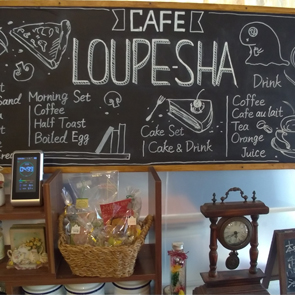 CAFE
LOUPE-SHA
Morning Set
Coffee
Half Toast
Boiled Egg
Cake Set
Cake & Drink
Drink
Coffee
Cafe au lait
Tea
Orange
Juice